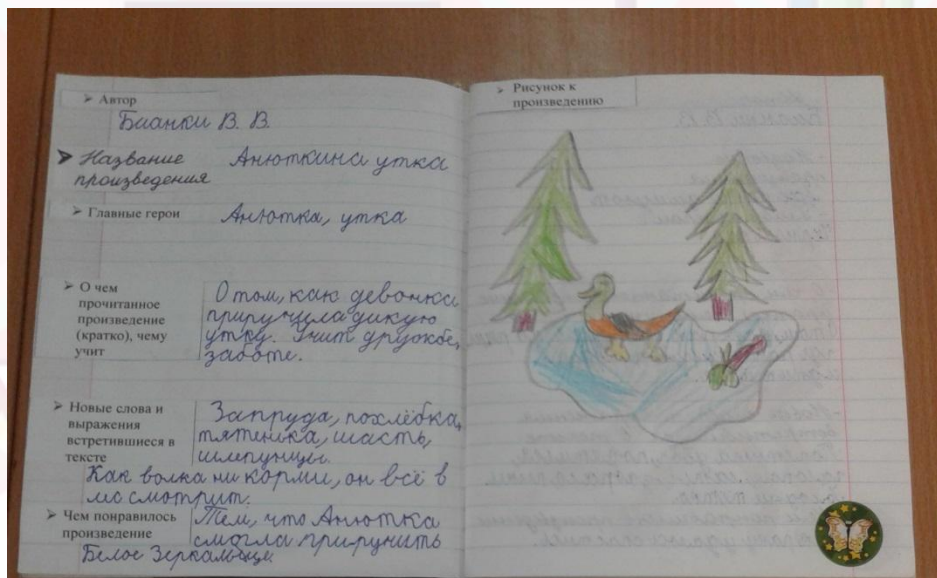 ➤ Автор
Бианки В. В.
➤ Название
произведения
Анюткина утка
➤ Главные герои
Анютка, утка
➤ О чем
прочитанное
произведение
(кратко), чему
учит
О том, как девочка
приручила дикую
утку. Учит дружбе,
заботе.
➤ Новые слова и
выражения
встретившиеся в
тексте
Запруда, похлёбка,
тятенька, шасть,
шмпунцы.
Как волка ни корми, он всё в
лес смотрит.
➤ Чем понравилось
произведение
Тем, что Анютка
смогла приручить
Белое Зеркальце.
➤ Рисунок к
произведению